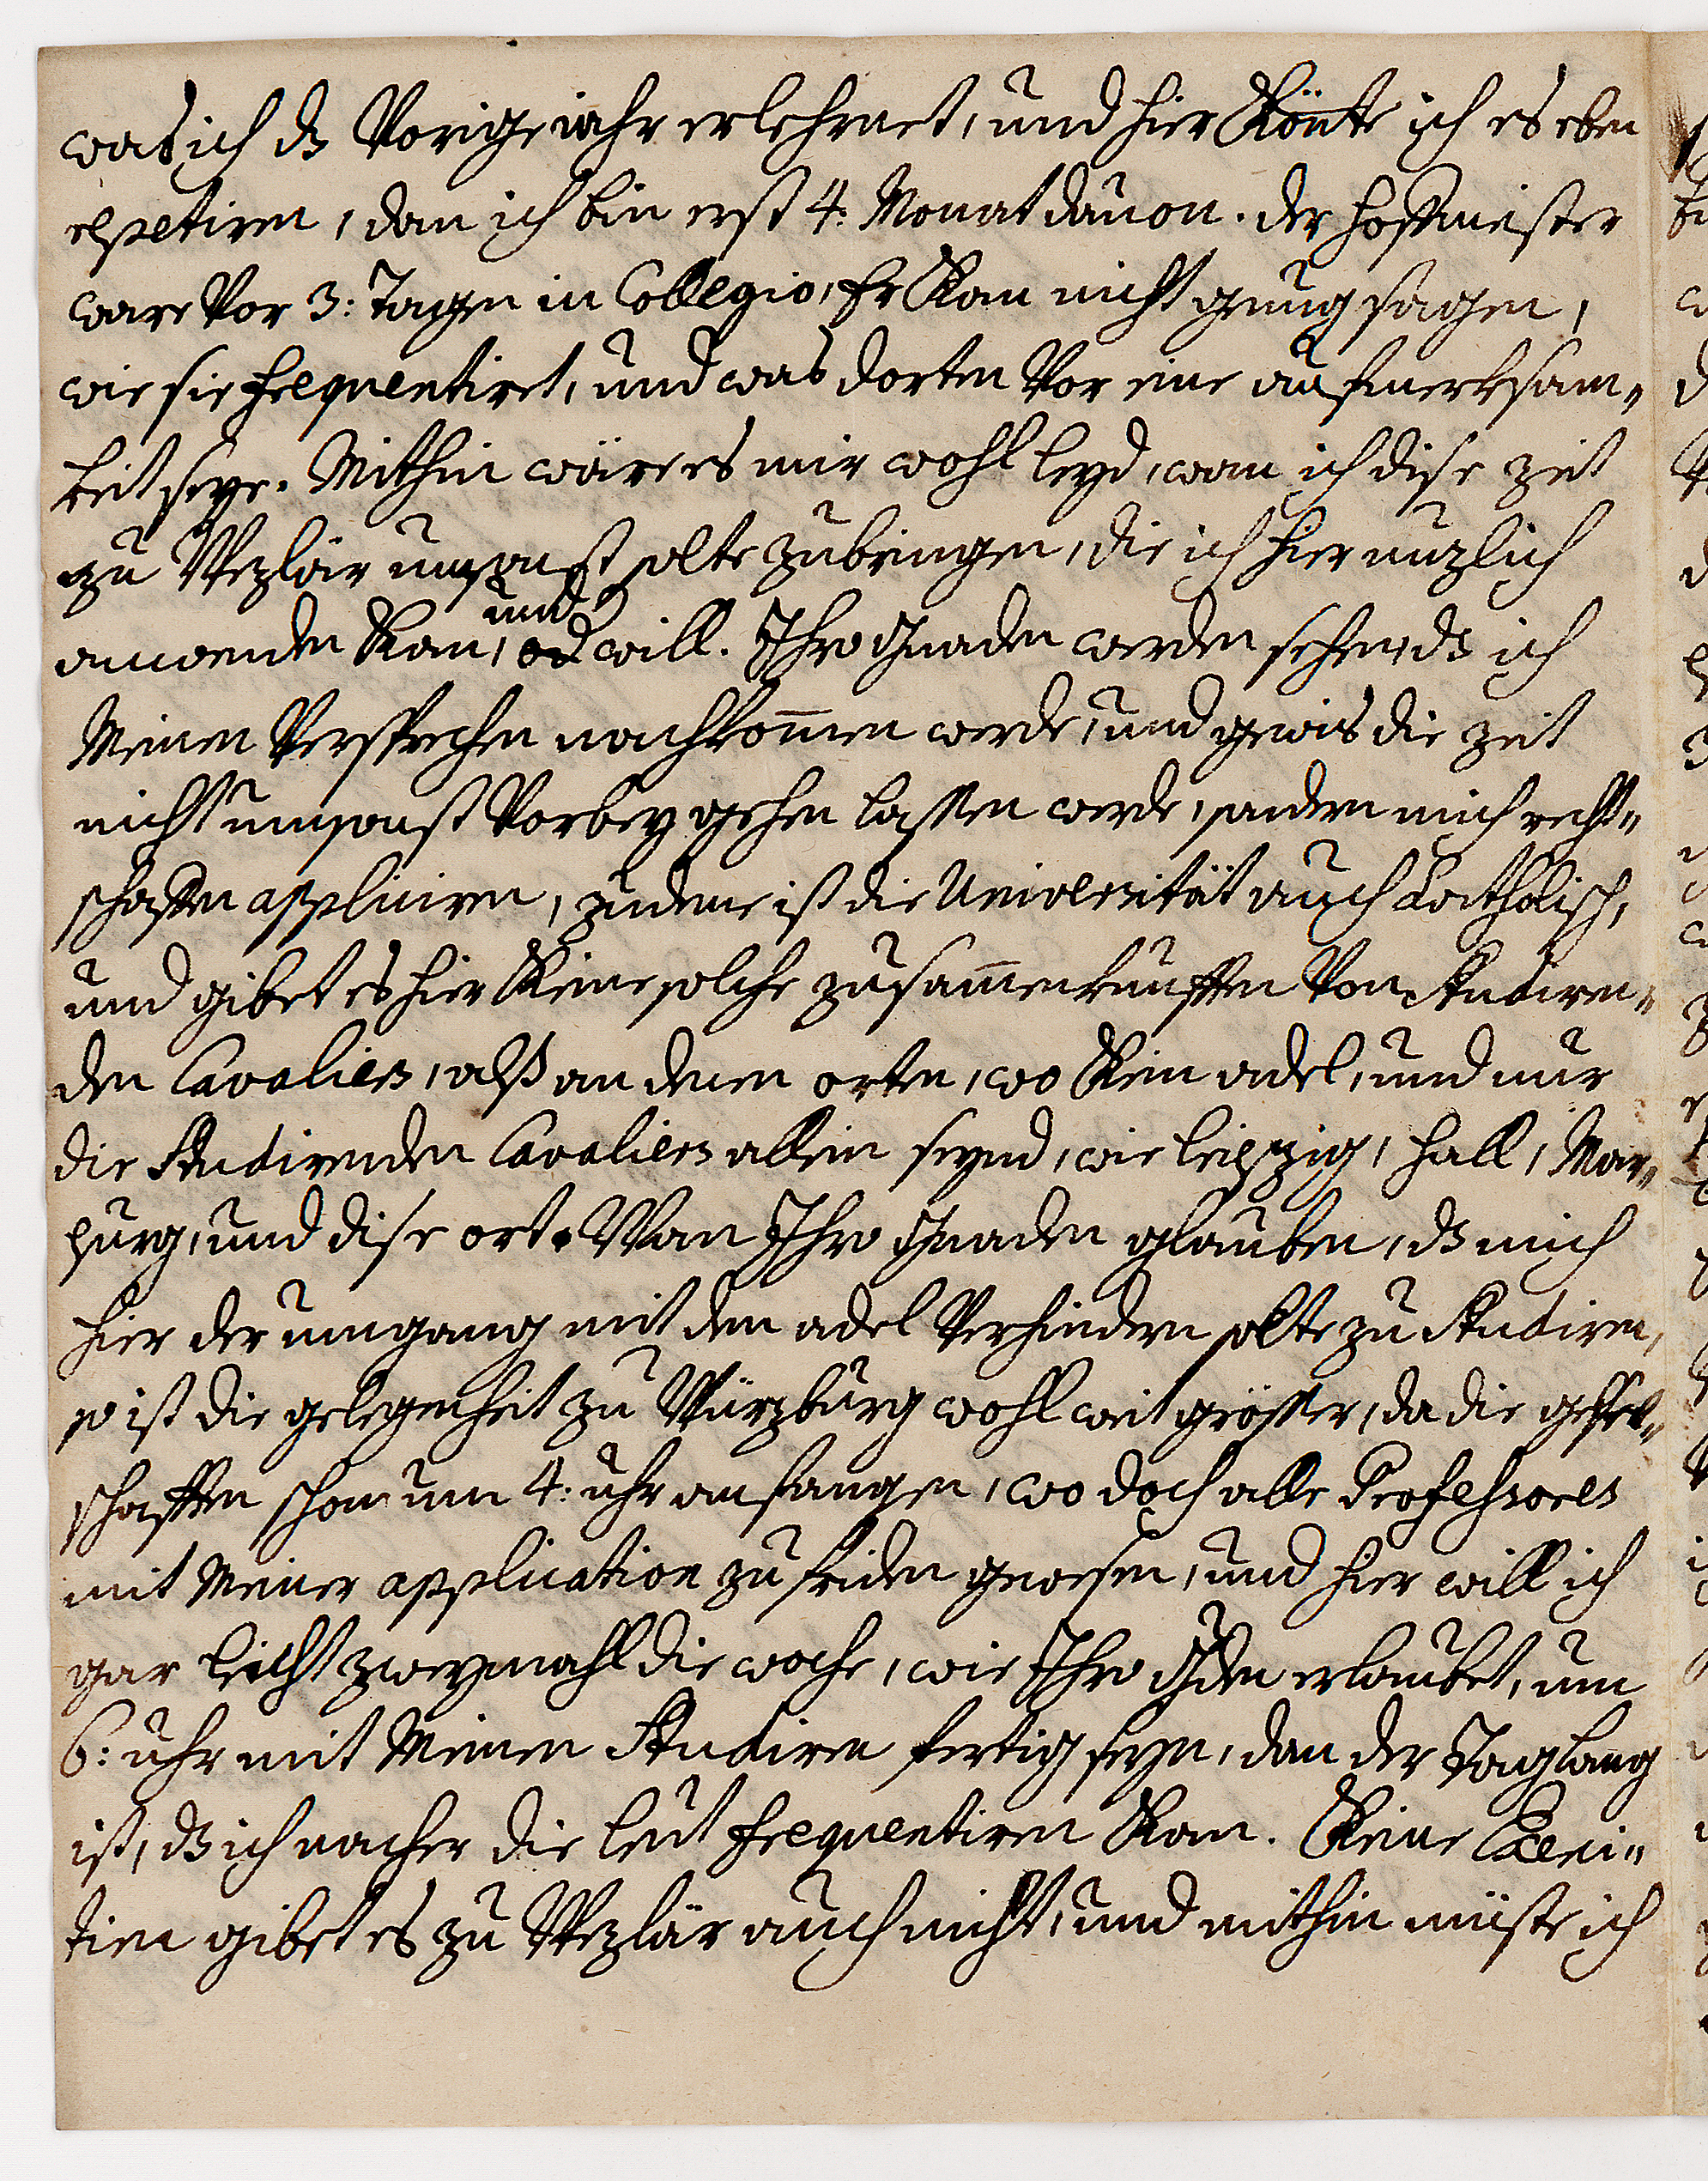 was ich dz Vorige iahr erlehrnet, und hier Könte ich es eben
repetiren, dan ich bin erst 4: Monat dauon. der hoffmeister
ware Vor 3: Tagen in Collegio, Er Kan nicht genug sagen,
wie sie frequentiret, und was dorten Vor eine aufmerksam„
keit seye. Mithin wäre es mir wohl leyd, wan ich dise zeit
zu Wezlar umsonst solte zubringen, die ich hier nuzlich
anwenden Kan, und will. Ihro Gnaden werden sehen, dz ich
Meinen Versprechen nachkom̅en werde, und gewis die zeit
nicht umsonst Vorbey gehen lassen werde, sondern mich recht„
schaffen appliciren, zudeme ist die Universität auch Catholisch,
und gibet es hier Keine solche zusam̅enkunfften Von studiren„
den Cavaliers, alß an denen orten, wo Kein adel, und nur
die studirenden Cavaliers allein seynd, wie leipzig, hall, Mar„
purg, und dise ort. Wan Ihro Gnaden glauben, dz mich
hier der umgang mit dem adel Verhindern solte zu studiren,
so ist die gelegenheit zu Würzburg wohl weit grösser, da die gesel„
schafften schon um 4: uhr anfangen, wo doch alle Professores
mit Meiner application zufriden gewesen, und hier will ich
gar leicht zweymahl die woche, wie Ihro Gden erlaubet, um
6: uhr mit Meinen studiren fertig seyn, dan der Tag lang
ist, dz ich nacher die leut frequentiren Kan. Keine Exerci„
tien gibet es zu Wezlar auch nicht, und mithin müste ich